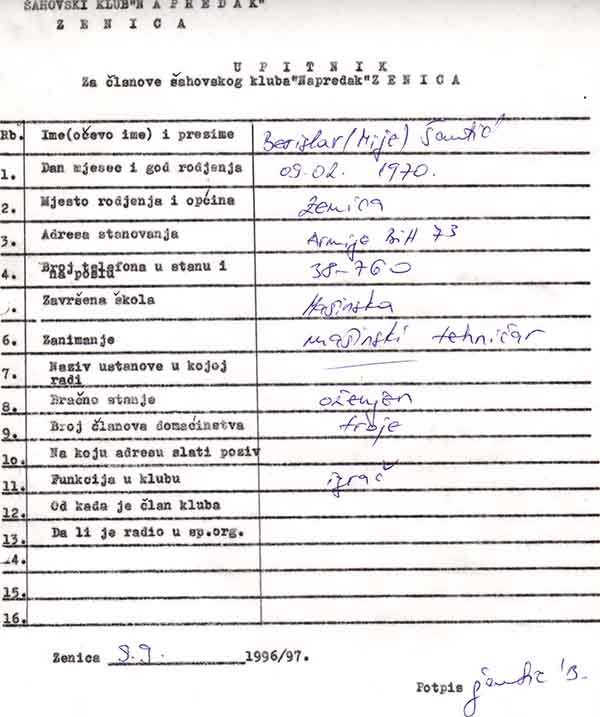 ŠAHOVSKI KLUB"N A P R E D A K"
Z E N I C A
U P I T N I K
Za članove šahovskog kluba"Napredak"Z E N I C A
Rb. Ime(očevo ime) i prezime Berislav (Mijo) Šantić
1. Dan mjesec i god rodjenja 09.02. 1970.
2. Mjesto rodjenja i općina Zenica
3. Adresa stanovanja Armije BiH 73
4. Broj telefona u stanu i
na poslu 38-760
Završena škola Mašinska
6. Zanimanje mašinski tehničar
7. Naziv ustanove u kojoj
radi
8. Bračno stanje oženjen
9. Broj članova domaćinstva troje
10. Na koju adresu slati poziv
11. Funkcija u klubu igrač
12. Od kada je član kluba
13. Da li je radio u sp.org.
14.
15.
16.
Zenica 9.9. 1996/97.
Potpis Šantić B.